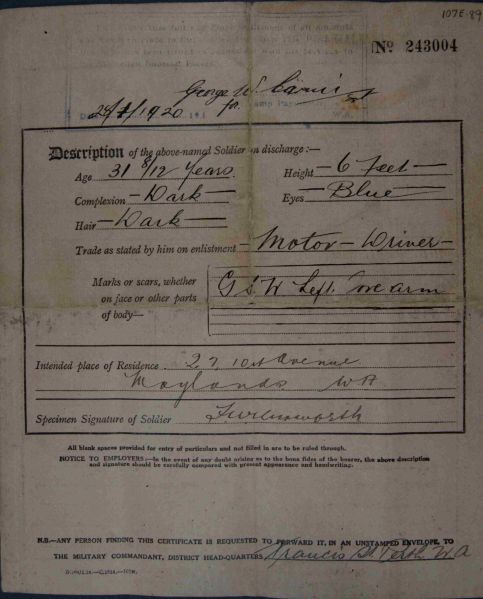 107E-89
Nº 243004
George W.
24/1/1920 for
Description of the above-named Soldier on discharge:—
Age 31 8/12 Years. Height 6 feet
Complexion Dark Eyes Blue
Hair Dark
Trade as stated by him on enlistment Motor Driver
Marks or scars, whether
on face or other parts
of body—
G S W Left Forearm
Intended place of Residence 27, 10th Avenue
Maylands WA
Specimen Signature of Soldier
All blank spaces provided for entry of particulars and not filled in are to be ruled through.
NOTICE TO EMPLOYERS:—In the event of any doubt arising as to the bona fides of the bearer, the above description
and signature should be carefully compared with present appearance and handwriting.
N.B.—ANY PERSON FINDING THIS CERTIFICATE IS REQUESTED TO FORWARD IT, IN AN UNSTAMPED ENVELOPE, TO
THE MILITARY COMMANDANT, DISTRICT HEAD-QUARTERS Francis St Perth W.A